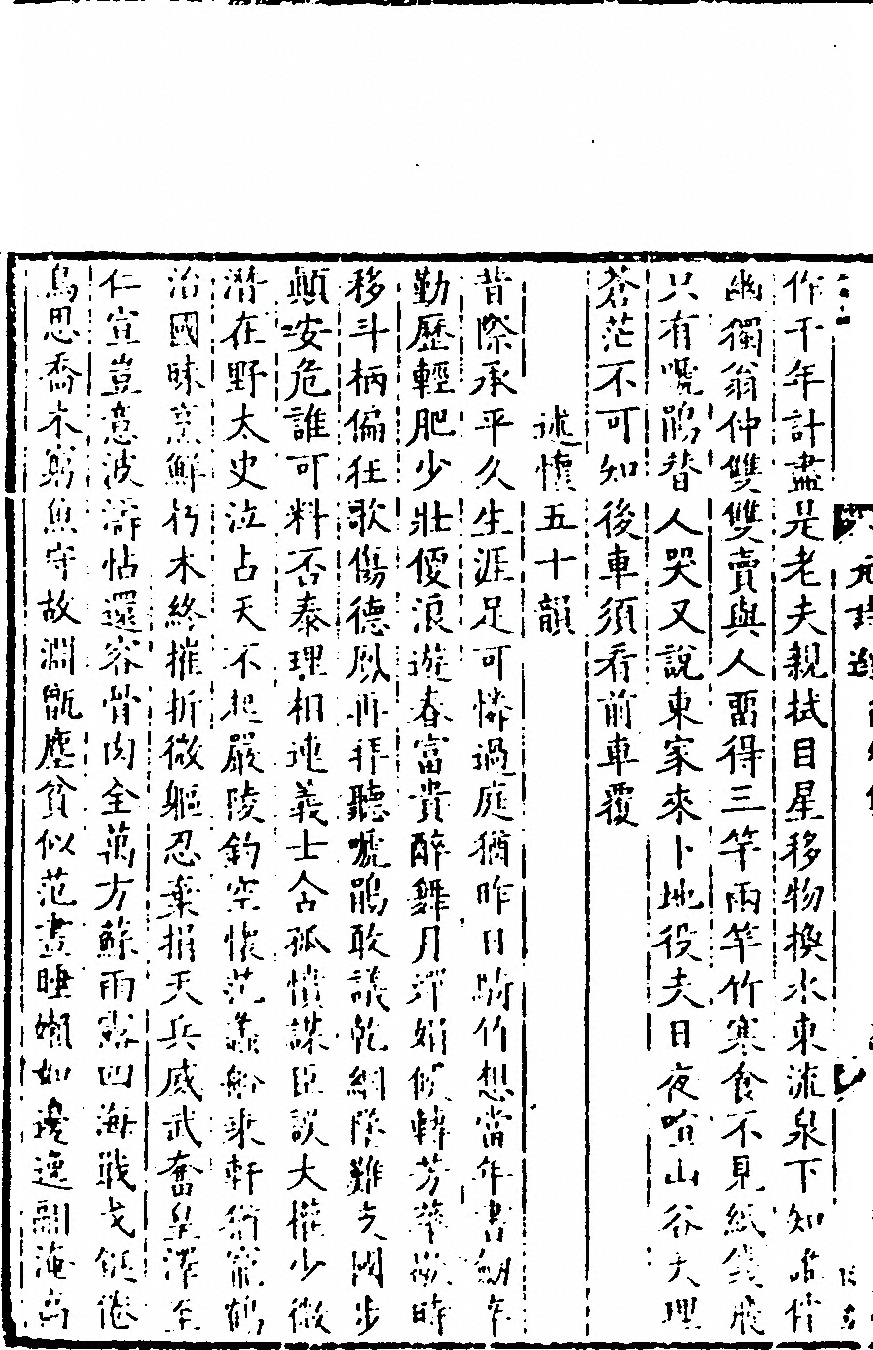 作千年計盡是老夫親拭目星移物換水東流泉下知啼什
幽獨翁仲雙雙賣與人畱得三竿兩竿竹寒食不見紙錢飛
只有嗁鵑替人哭又說東家來卜地役夫日夜啥山谷天理
蒼茫不可知後車須看前車覆
述懷五十韻
昔際承平久生涯足可憐過庭猶昨日騎竹想當年書劎辛
勤歷輕肥少壯便浪遊春富貴醉舞月嬋娟候轉芳華歇時
移斗柄偏狂歌傷德鳳再拜聽嗁鵑敢議乾綱墜難支國步
顛安危誰可料否泰理相連義士含孤憤謀臣誤大權少微
潛在野太史泣占天不起嚴陵釣空懷范蠡船乘軒猶寵鶴
治國昧烹鮮朽木終摧折微軀忍棄捐天兵威武奮皇澤至
仁宣豈意波濤帖還容骨肉全萬方蘇雨露四海戢戈鋋倦
鳥思喬木窮魚守故淵甑塵貧似范晝睡嬾如邊逸翮淹高
元詩選